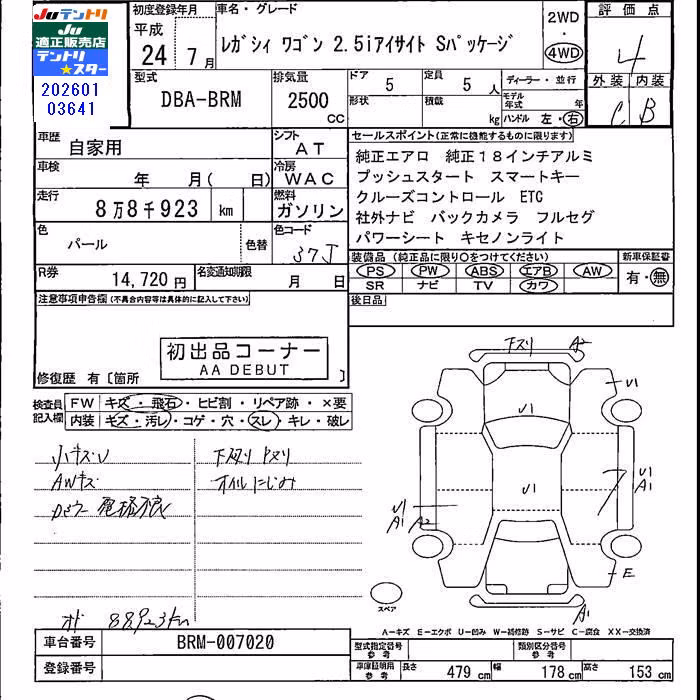 JUテントリ
JU
適正販売店
テントリ
★スター
202601
03641
初度登録年月
平成
24 7月
車名・グレード
レガシィ ワゴン 2.5iアイサイト Sパッケージ
2WD
・
4WD
評価点
4
外装 内装
C B
型式
DBA-BRM
排気量
2500
CC
ドア
5
形状
定員
5 人
積載
kg
ディーラー・並行
モデル年式 年
ハンドル 左・右
車歴
自家用
シフト
AT
車検
年 月( 日)
冷房
WAC
走行
8万8千923 km
燃料
ガソリン
色
パール
色替
色コード
37J
R券
14,720円
名変通知期限
月 日
セールスポイント(正常に機能するものに限ります)
純正エアロ 純正18インチアルミ
プッシュスタート スマートキー
クルーズコントロール ETC
社外ナビ バックカメラ フルセグ
パワーシート キセノンライト
装備品 (純正品に限り〇をつけてください)
新車保証書
PS PW ABS エアB AW
SR ナビ TV カワ
有・無
後日品
注意事項申告欄(不具合内容等は具体的に記入して下さい)
初出品コーナー
AA DEBUT
修復歴 有〔箇所 〕
検査員記入欄
FW キズ・飛石・ヒビ割・リペア跡・×要
内装 キズ・汚レ・コゲ・穴・スレ・キレ・破レ
小キズU
AWキズ
下スリ
オイルにじみ
オド 88923km
下スリ A2
U1
U1
U1
U1
A1 A2
U1
A1
E
A1
スペア
A-キズ E-エクボ U-凹み W-補修跡 S-サビ C-腐食 XX-交換済
車台番号
BRM-007020
登録番号
型式指定番号
参考
類別区分番号
参考
車庫証明用
参考
長さ 479 cm
幅 178 cm
高さ 153 cm